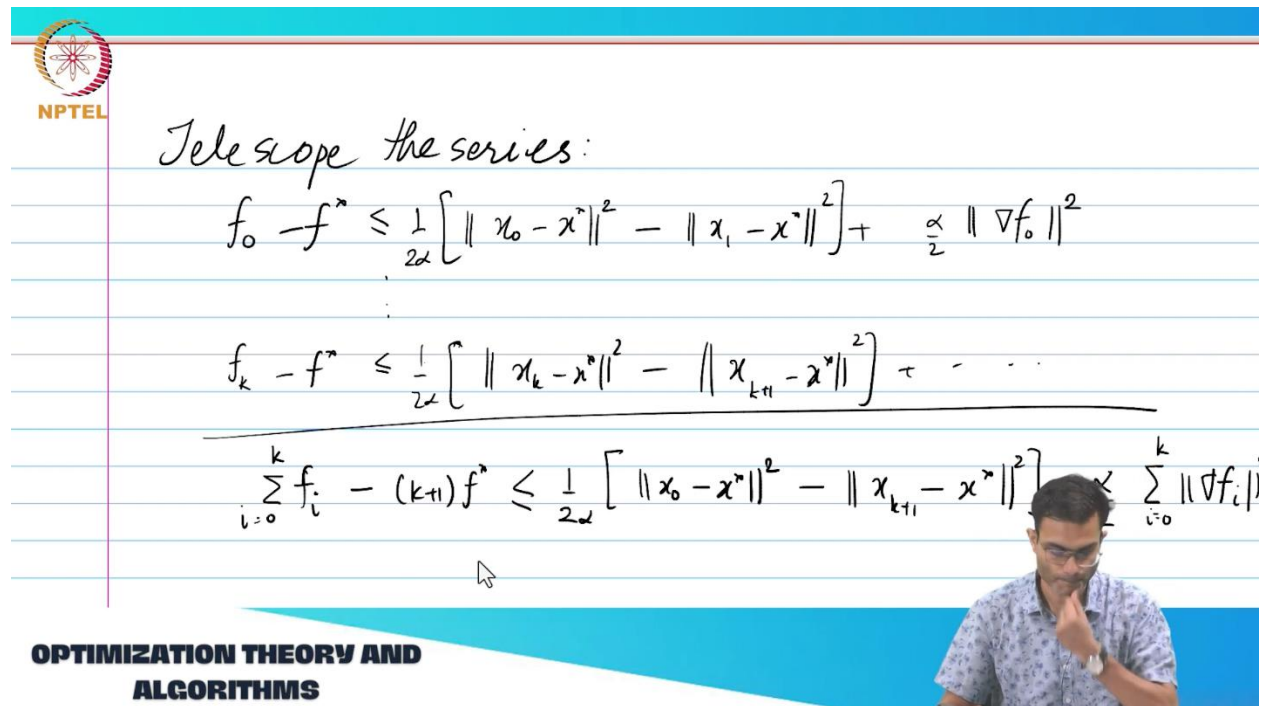 NPTEL
Telescope the series:
f₀ - f* ≤ 1/2α [ ‖ x₀ - x*‖² - ‖ x₁ - x*‖² ] + α/2 ‖ ∇f₀ ‖²
⋮
f_k - f* ≤ 1/2α [ ‖ x_k - x*‖² - ‖ x_{k+1} - x*‖² ] + - · ·
∑_{i=0}^{k} f_i - (k+1) f* ≤ 1/2α [ ‖ x₀ - x*‖² - ‖ x_{k+1} - x*‖² ] ∑_{i=0}^{k} ‖∇f_i‖
OPTIMIZATION THEORY AND
ALGORITHMS